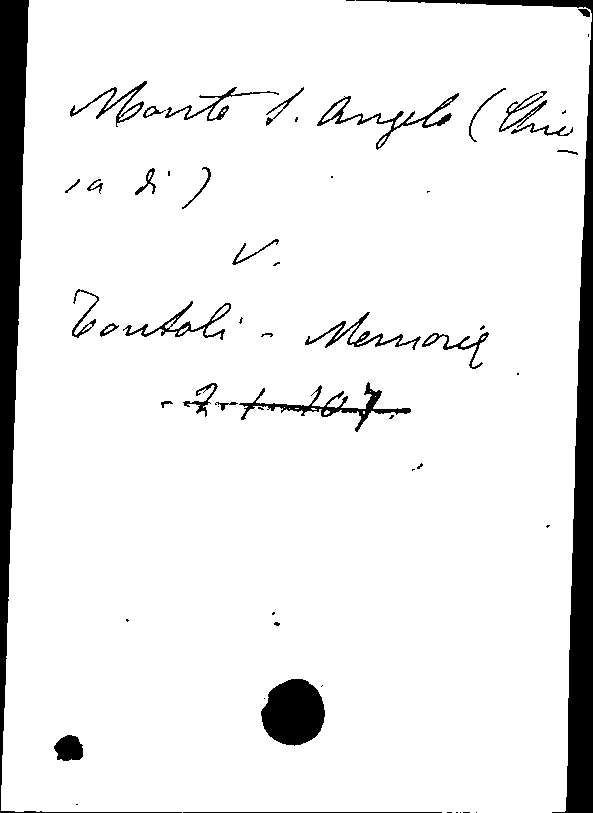 Monte S. Angelo (Chie
sa di)
V.
Tontoli - Memorie
2. 1. 107.